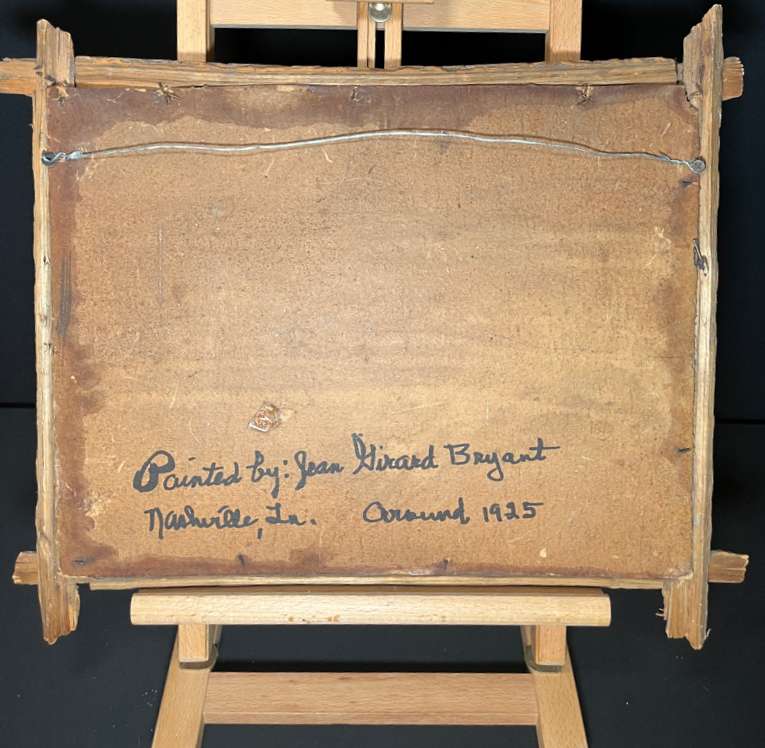 Painted by: Jean Girard Bryant
Nashville, In. Around 1925